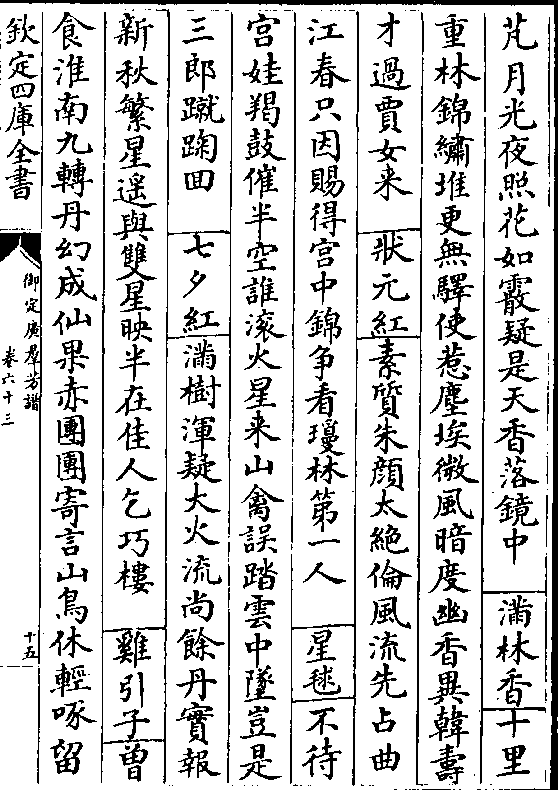 芃月光夜照花如霰疑是天香落鏡中 滿林香十里
重林錦繡堆更無驛使惹塵埃微風暗度幽香異韓壽
才過賈女来 狀元紅素質朱顔太絶倫風流先占曲
江春只因賜得宫中錦争看瓊林第一人 星毬不待
宫娃羯鼓催半空誰滚火星来山禽誤踏雲中墜豈是
三郎蹴踘回 七夕紅滿樹渾疑大火流尚餘丹實報
新秋繁星遥與雙星映半在佳人乞巧樓 雞引子曽
食淮南九轉丹幻成仙果赤團團寄言山鳥休輕啄留
欽定四庫全書
御定廣羣芳譜
卷六十三
十五